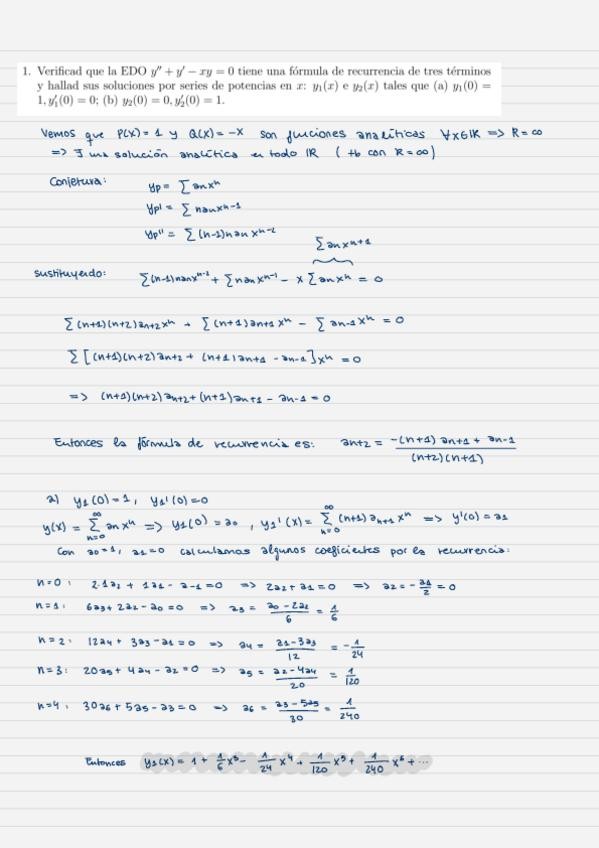 1. Verificad que la EDO y'' + y' − xy = 0 tiene una fórmula de recurrencia de tres términos
y hallad sus soluciones por series de potencias en x: y₁(x) e y₂(x) tales que (a) y₁(0) =
1, y₁'(0) = 0; (b) y₂(0) = 0, y₂'(0) = 1.
Vemos que P(x) = 1 y Q(x) = -x son funciones analíticas ∀x∈ℝ => R = ∞
=> ∃ una solución analítica en todo ℝ (tb con R = ∞)
Conjetura: yp = ∑ anxⁿ
yp' = ∑ nanxⁿ⁻¹
yp'' = ∑ (n-1)nan xⁿ⁻²
∑ anxⁿ⁺¹
sustituyendo: ∑(n-1)nanxⁿ⁻² + ∑nanxⁿ⁻¹ - x∑anxⁿ = 0
∑(n+1)(n+2)an+2xⁿ + ∑(n+1)an+1xⁿ - ∑an-1xⁿ = 0
∑[(n+1)(n+2)an+2 + (n+1)an+1 - an-1]xⁿ = 0
=> (n+1)(n+2)an+2 + (n+1)an+1 - an-1 = 0
Entonces la fórmula de recurrencia es: an+2 = -(n+1)an+1 + an-1 / (n+2)(n+1)
a) y1(0) = 1, y1'(0) = 0
y(x) = ∞∑n=0 anxⁿ => y1(0) = a0, y1'(x) = ∞∑n=0 (n+1)an+1xⁿ => y'(0) = a1
Con a0 = 1, a1 = 0 calculamos algunos coeficientes por la recurrencia:
n=0: 2·1a2 + 1a1 - a-1 = 0 => 2a2 + a1 = 0 => a2 = -a1/2 = 0
n=1: 6a3 + 2a2 - a0 = 0 => a3 = a0 - 2a2/6 = 1/6
n=2: 12a4 + 3a3 - a1 = 0 => a4 = a1 - 3a3/12 = -1/24
n=3: 20a5 + 4a4 - a2 = 0 => a5 = a2 - 4a4/20 = 1/120
n=4: 30a6 + 5a5 - a3 = 0 => a6 = a3 - 5a5/30 = 1/240
Entonces y1(x) = 1 + 1/6 x³ - 1/24 x⁴ + 1/120 x⁵ + 1/240 x⁶ + ...